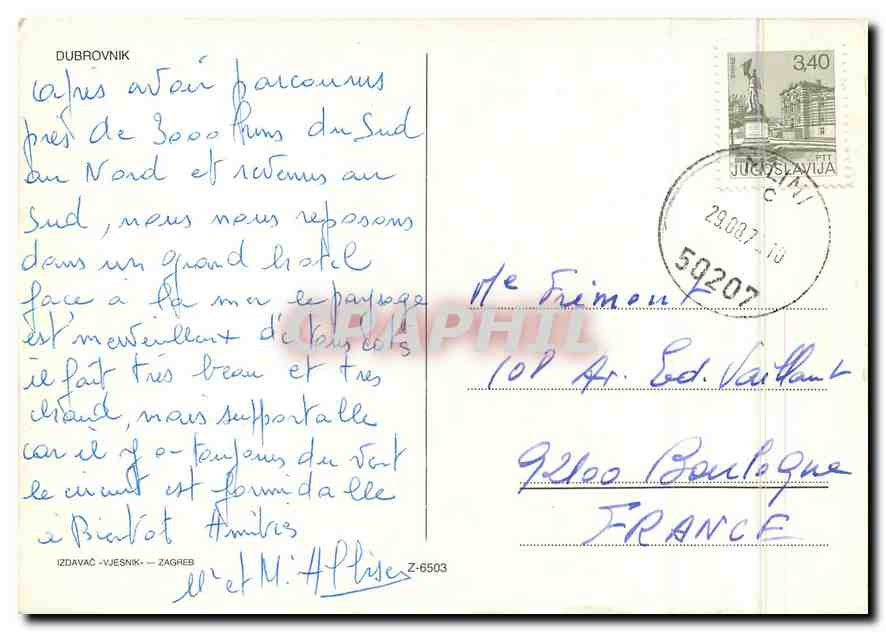 DUBROVNIK
après avoir parcourus
près de 3000 kms du Sud
au Nord et revenus au
Sud, nous nous reposons
dans un grand hotel
face à la mer le paysage
est merveilleux de tous cotés
il fait très beau et très
chaud, mais supportable
car il y a toujours du vent
le circuit est formidable
à Bientot Amitiés
Mr et Me
IZDAVAČ «VJESNIK» — ZAGREB
Z-6503
3,40
PTT
JUGOSLAVIJA
MLINI
C
29.08.7 10
50207
Me Frimont
108 Av. Ed. Vaillant
92100 Boulogne
FRANCE
CPAPHIL